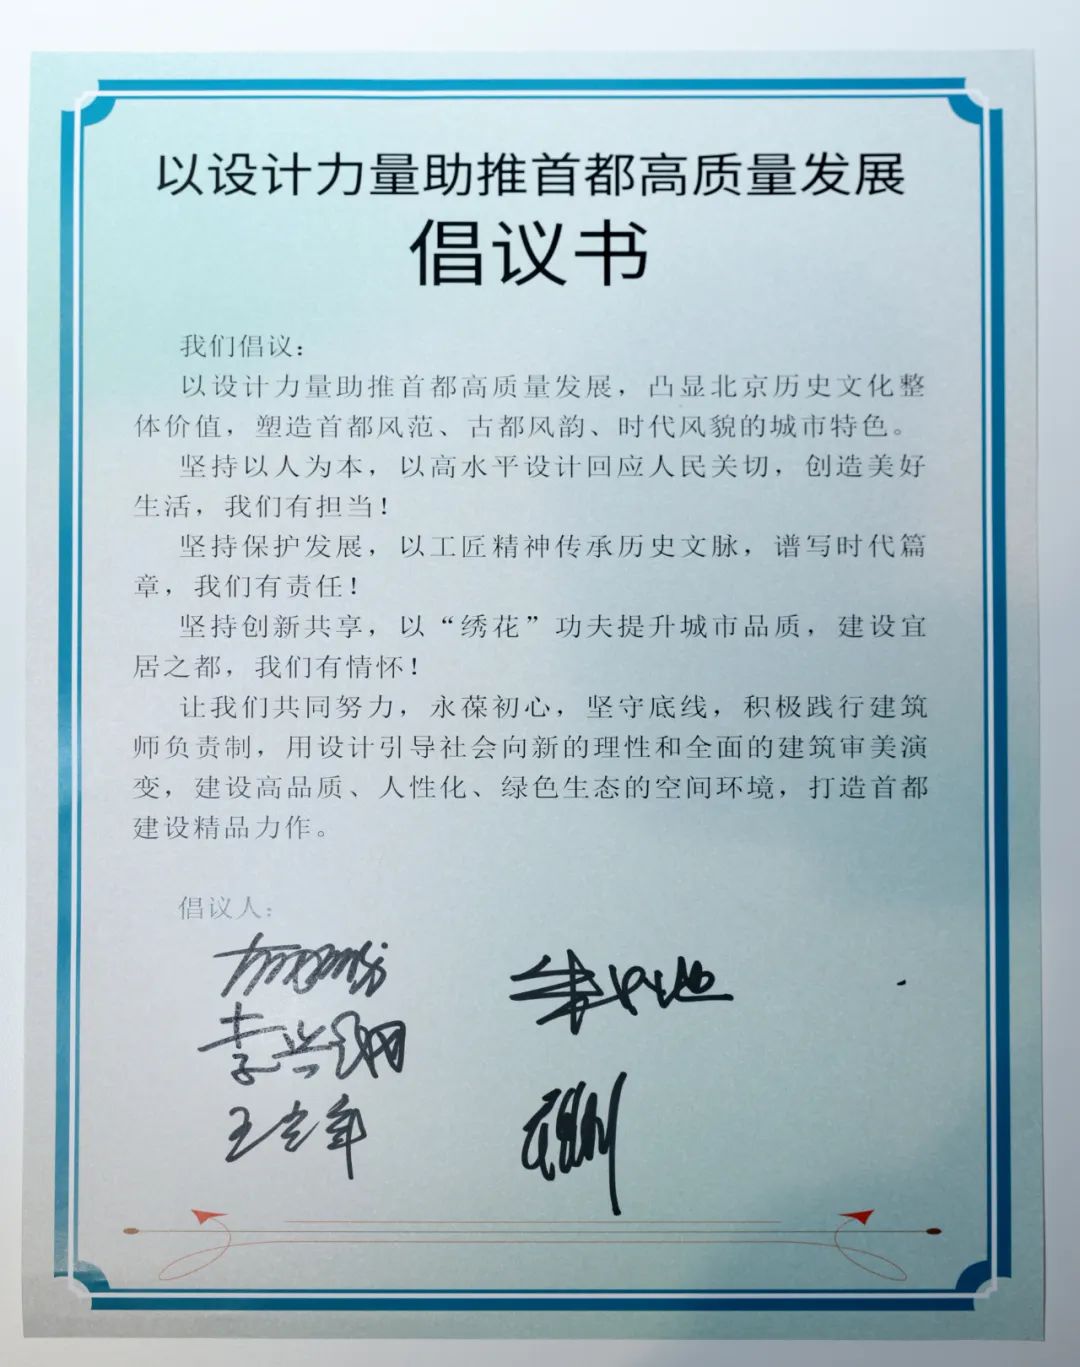 以设计力量助推首都高质量发展
倡议书
我们倡议：
以设计力量助推首都高质量发展，凸显北京历史文化整
体价值，塑造首都风范、古都风韵、时代风貌的城市特色。
坚持以人为本，以高水平设计回应人民关切，创造美好
生活，我们有担当！
坚持保护发展，以工匠精神传承历史文脉，谱写时代篇
章，我们有责任！
坚持创新共享，以“绣花”功夫提升城市品质，建设宜
居之都，我们有情怀！
让我们共同努力，永葆初心，坚守底线，积极践行建筑
师负责制，用设计引导社会向新的理性和全面的建筑审美演
变，建设高品质、人性化、绿色生态的空间环境，打造首都
建设精品力作。
倡议人：
李兴钢